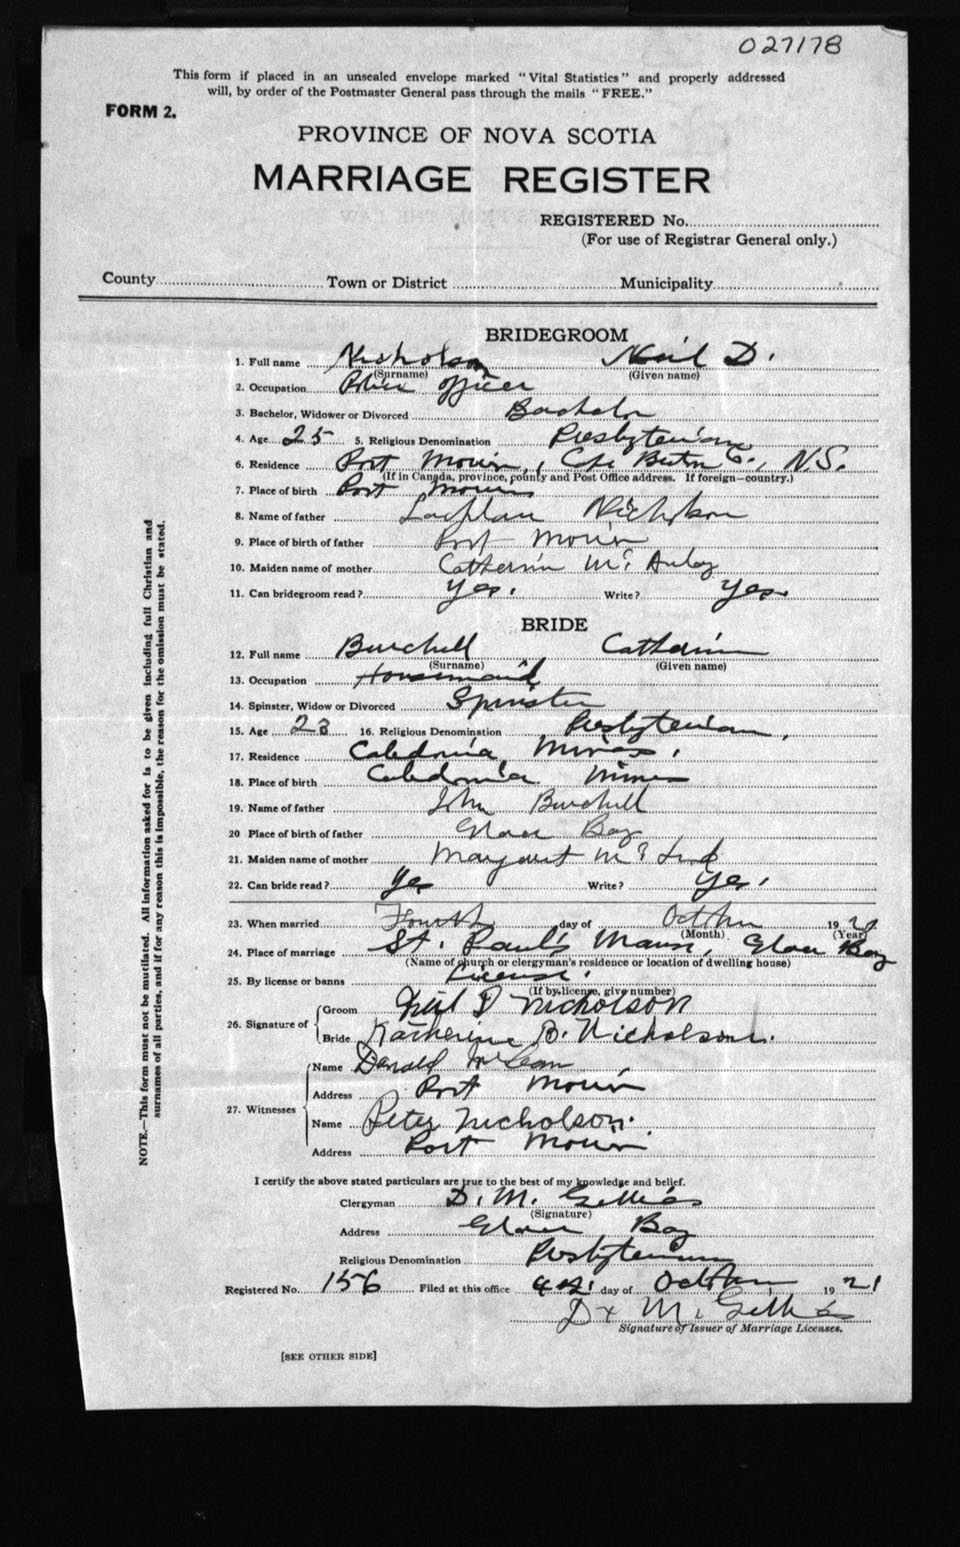 027178
This form if placed in an unsealed envelope marked "Vital Statistics" and properly addressed
will, by order of the Postmaster General pass through the mails "FREE."
FORM 2.
PROVINCE OF NOVA SCOTIA
MARRIAGE REGISTER
REGISTERED No.
(For use of Registrar General only.)
County Town or District Municipality
BRIDEGROOM
1. Full name Nicholson Neil D.
(Surname) (Given name)
2. Occupation Police officer
3. Bachelor, Widower or Divorced Bachelor
4. Age 25 5. Religious Denomination Presbyterian
6. Residence Port Morien, Cape Breton Co., N.S.
(If in Canada, province, county and Post Office address. If foreign—country.)
7. Place of birth Port Morien
8. Name of father Lachlan Nicholson
9. Place of birth of father Port Morien
10. Maiden name of mother Catherine Mc Aulay
11. Can bridegroom read? Yes. Write? Yes.
BRIDE
12. Full name Burchell Catherine
(Surname) (Given name)
13. Occupation Housemaid
14. Spinster, Widow or Divorced Spinster
15. Age 23 16. Religious Denomination Presbyterian.
17. Residence Caledonia Mines.
18. Place of birth Caledonia Mines
19. Name of father John Burchell
20 Place of birth of father Glace Bay
21. Maiden name of mother Margaret Mc
22. Can bride read? Yes Write? Yes.
23. When married Fourth day of October 1921
(Month) (Year)
24. Place of marriage St. Paul's Manse, Glace Bay
(Name of church or clergyman's residence or location of dwelling house)
25. By license or banns License.
(If by license, give number)
26. Signature of Groom Neil D Nicholson
Bride Katherine B. Nicholson.
27. Witnesses Name Donald McLean
Address Port Morien
Name Peter Nicholson.
Address Port Morien
I certify the above stated particulars are true to the best of my knowledge and belief.
Clergyman D. M. Gillies
(Signature)
Address Glace Bay
Religious Denomination Presbyterian
Registered No. 156 Filed at this office day of October 1921
M. Gillies
Signature of Issuer of Marriage Licenses.
[SEE OTHER SIDE]
NOTE.—This form must not be mutilated. All information asked for is to be given including full Christian and
surnames of all parties, and if for any reason this is impossible, the reason for the omission must be stated.